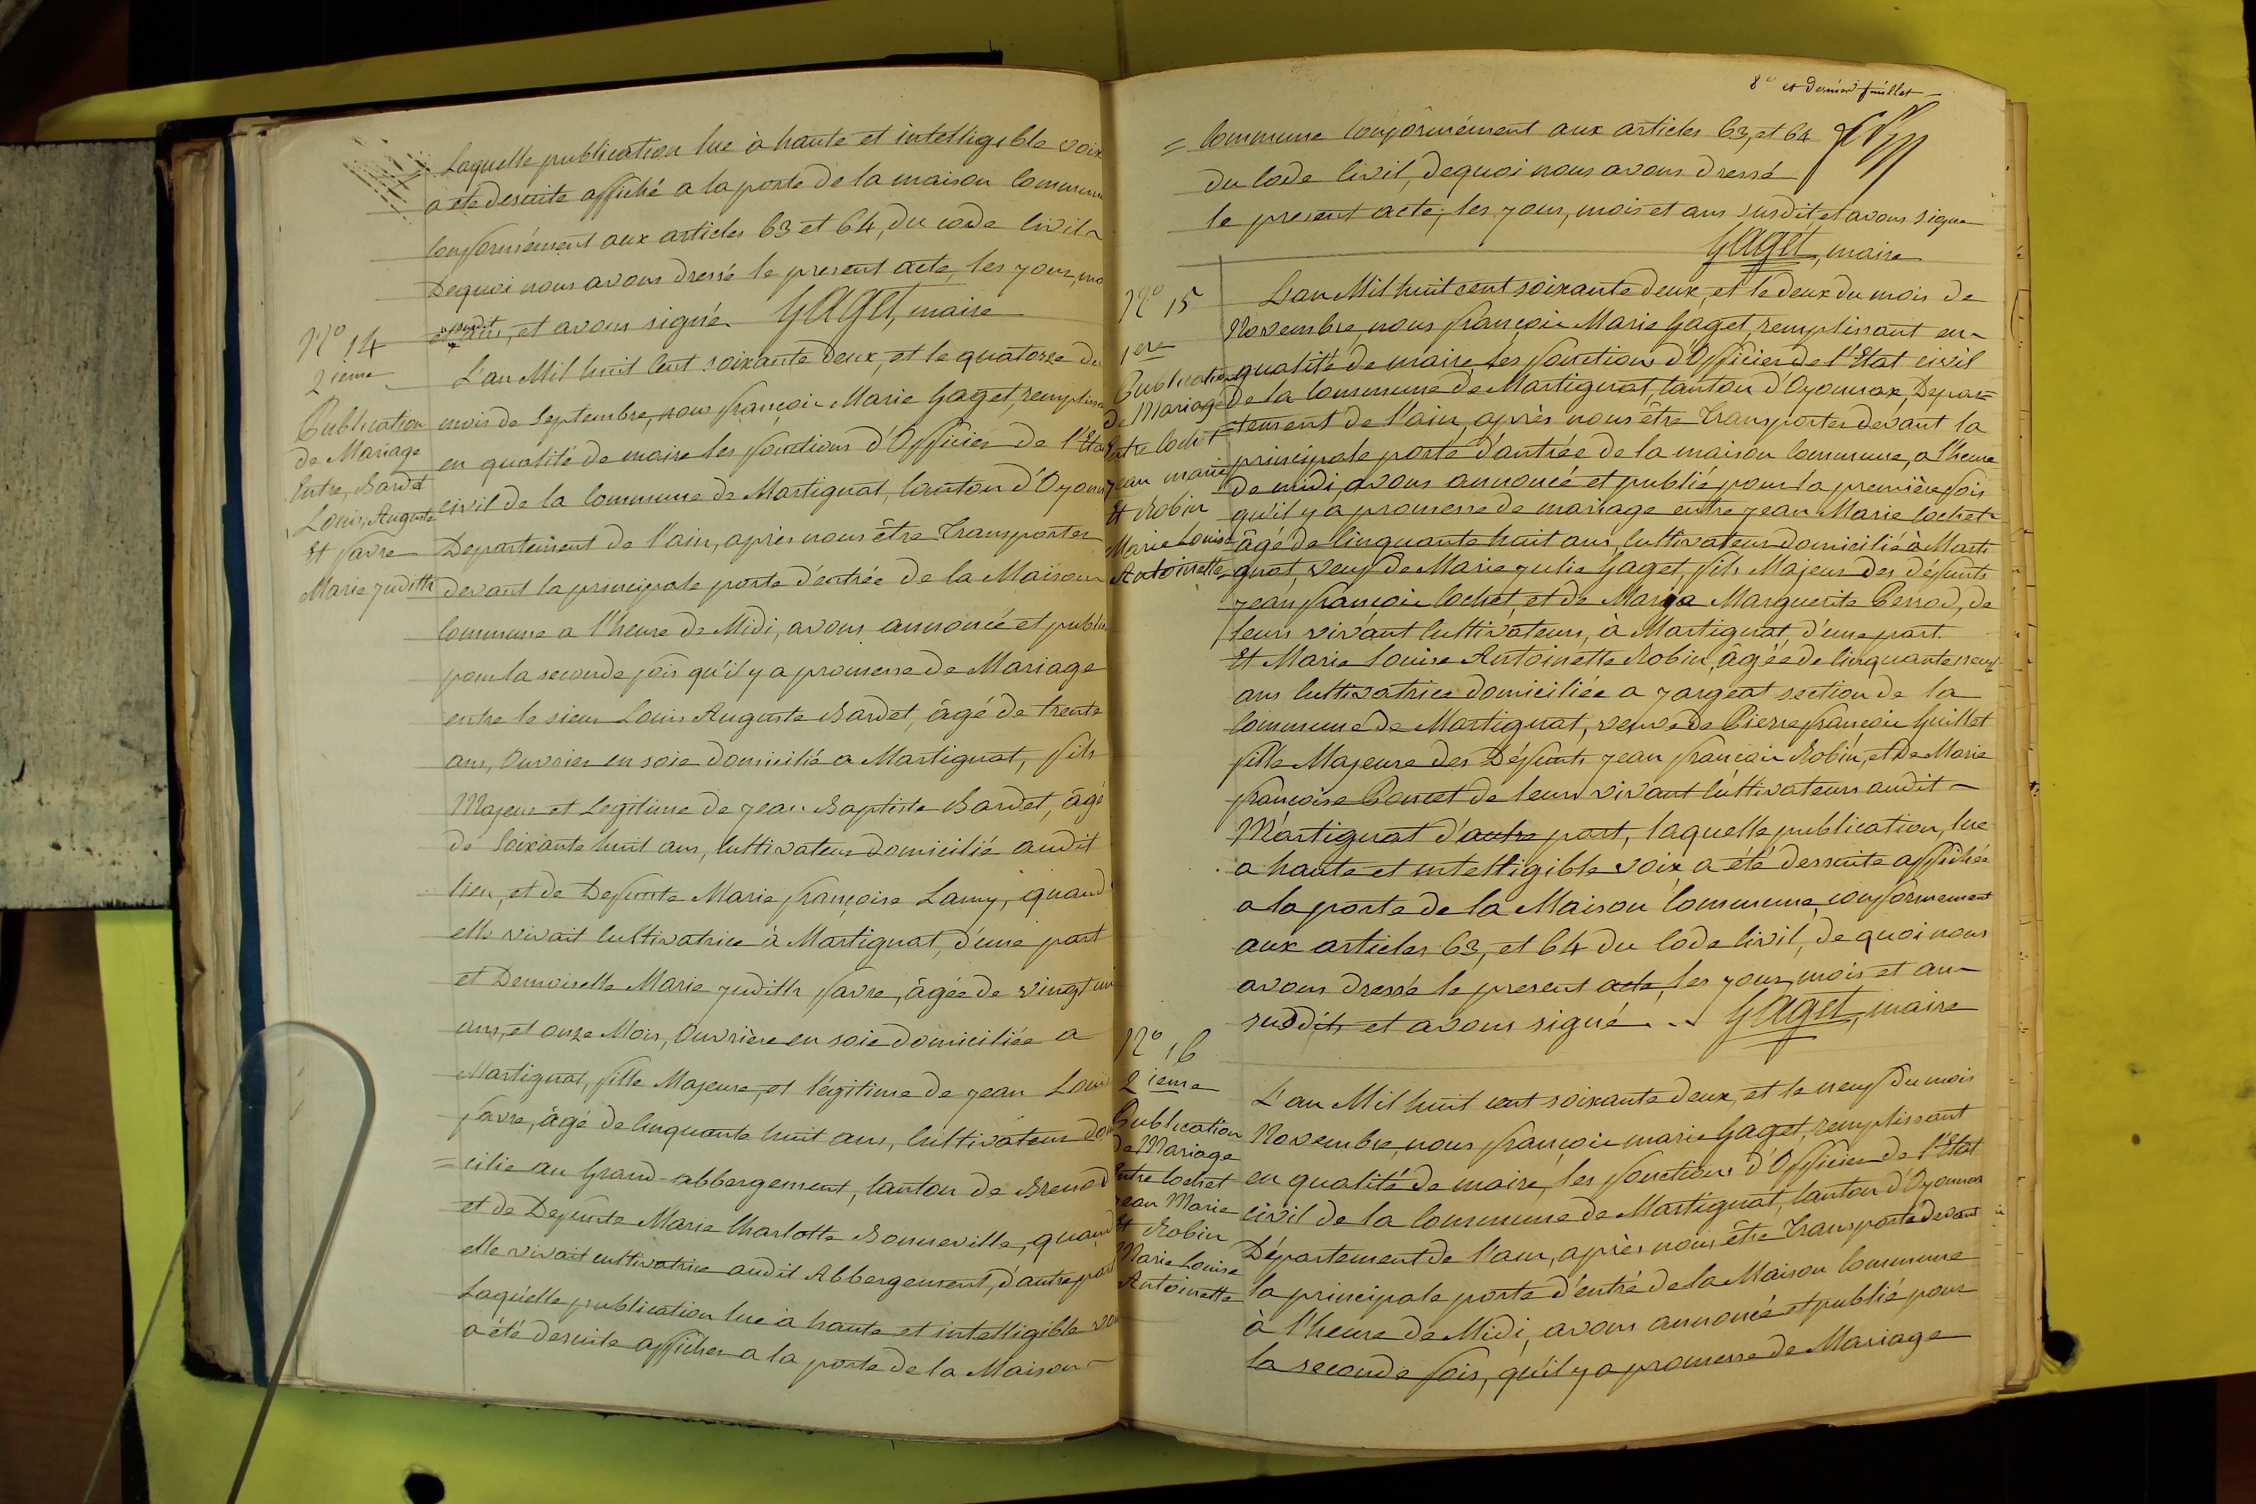 Laquelle publication lue à haute et intelligible voix
a été desuite affiché a la porte de la maison Commune
Conformément aux articles 63 et 64, du code civil
Dequoi nous avons dressé le present acte, les jour, mo
et ans susdit, et avons signé. Gaget, maire
N° 14
2ieme
Publication
de Mariage
Entre, Bardet
Louis, Auguste
Et favre
Marie judith
L'an Mil huit Cent soixante deux, et le quatorze du
mois de Septembre, nous françois Marie Gaget, remplissa
en qualité de maire les fonctions d'Officier de l'Etat
civil de la Commune de Martignat, Canton d'Oyonna
Departement de l'ain, après nous être Transporter
devant la principale porte d'entrée de la Maison
Commune a l'heure de Midi, avons annoncé et publié
pour la seconde fois qu'il y a promesse de Mariage
entre le sieur Louis Auguste Bardet, âgé de trente
ans, Ouvrier en soie domicilié a Martignat, fils
Majeur et Legitime de jean Baptiste Bardet, âgé
de Soixante huit ans, Cultivateur Domicilié audit
lieu, et de Defunte Marie françoise Lamy, quand
elle vivait Cultivatrice à Martignat, d'une part
et Demoiselle Marie judith favre, âgée de vingt un
ans, et onze Mois, Ouvrière en soie domiciliée a
Martignat, fille Majeure, et légitime de jean Louis
favre, âgé de Cinquante huit ans, Cultivateur dom
= cilié au Grand-abbergement, Canton de Brenod
et de Defunte Marie Charlotte Bonneville, quand
elle vivait cultivatrice audit Abbergement, d'autre part
Laquelle publication lue à haute et intelligible voi
a été desuite afficher a la porte de la Maison
8e et dernier feuillet
= Commune Conformément aux articles 63, et 64
du Code Civil, dequoi nous avons dressé
le present acte, les jour, mois et ans susdit, et avons signe
Gaget, maire
N° 15
1ere
Publication
de Mariage
Entre Cochet
jean marie
Et Robin
Marie Louise
Antoinette
L'an Mil huit cent soixante deux, et le deux du mois de
Novembre, nous françois Marie Gaget, remplissant en
qualité de maire, les fonctions d'Officier de l'Etat civil
de la Commune de Martignat, Canton d'Oyonnax, Depar=
=tement de l'ain, après nous être Transporter devant la
principale porte d'antrée de la maison Commune, a l'heure
de midi, avons annoncé et publié pour la première fois
qu'il y a promesse de mariage entre jean Marie Cochet
âgé de Cinquante huit ans, Cultivateur domicilié à Marti
gnat, veuf de Marie julie Gaget, fils Majeur des défunts
jean françois Cochet, et de Marie Marguerite Perrod, de
leurs vivant Cultivateurs, à Martignat, d'une part.
Et Marie Louise Antoinette Robin, âgée de Cinquante neuf
ans Cultivatrice domiciliée a jargeat section de la
Commune de Martignat, veuve de Pierre françois Guillet
fille Majeure des Défunts jean françois Robin, et de Marie
françoise Poncet de leurs vivant Cultivateurs audit
Martignat d'autre part, laquelle publication, lue
a haute et intelligible voix, a été dessuite affichée
a la porte de la Maison Commune, conformement
aux articles 63, et 64 du Code Civil, de quoi nous
avons dressé le present acte, les jour, mois et an
susdits et avons signé. Gaget, maire
N° 16
2ieme
Publication
de Mariage
Entre Cochet
jean Marie
Et Robin
Marie Louise
Antoinette
L'an Mil huit cent soixante deux, et le neuf du mois
Novembre, nous françois marie Gaget, remplissant
en qualité de maire, les fonctions d'Officier de l'Etat
civil de la Commune de Martignat, Canton d'Oyonnax
Département de l'ain, après nous être Transporte devant
la principale porte d'entré de la Maison Commune
à l'heure de Midi, avons annoncé et publié pour
la seconde fois, qu'il y a promesse de Mariage